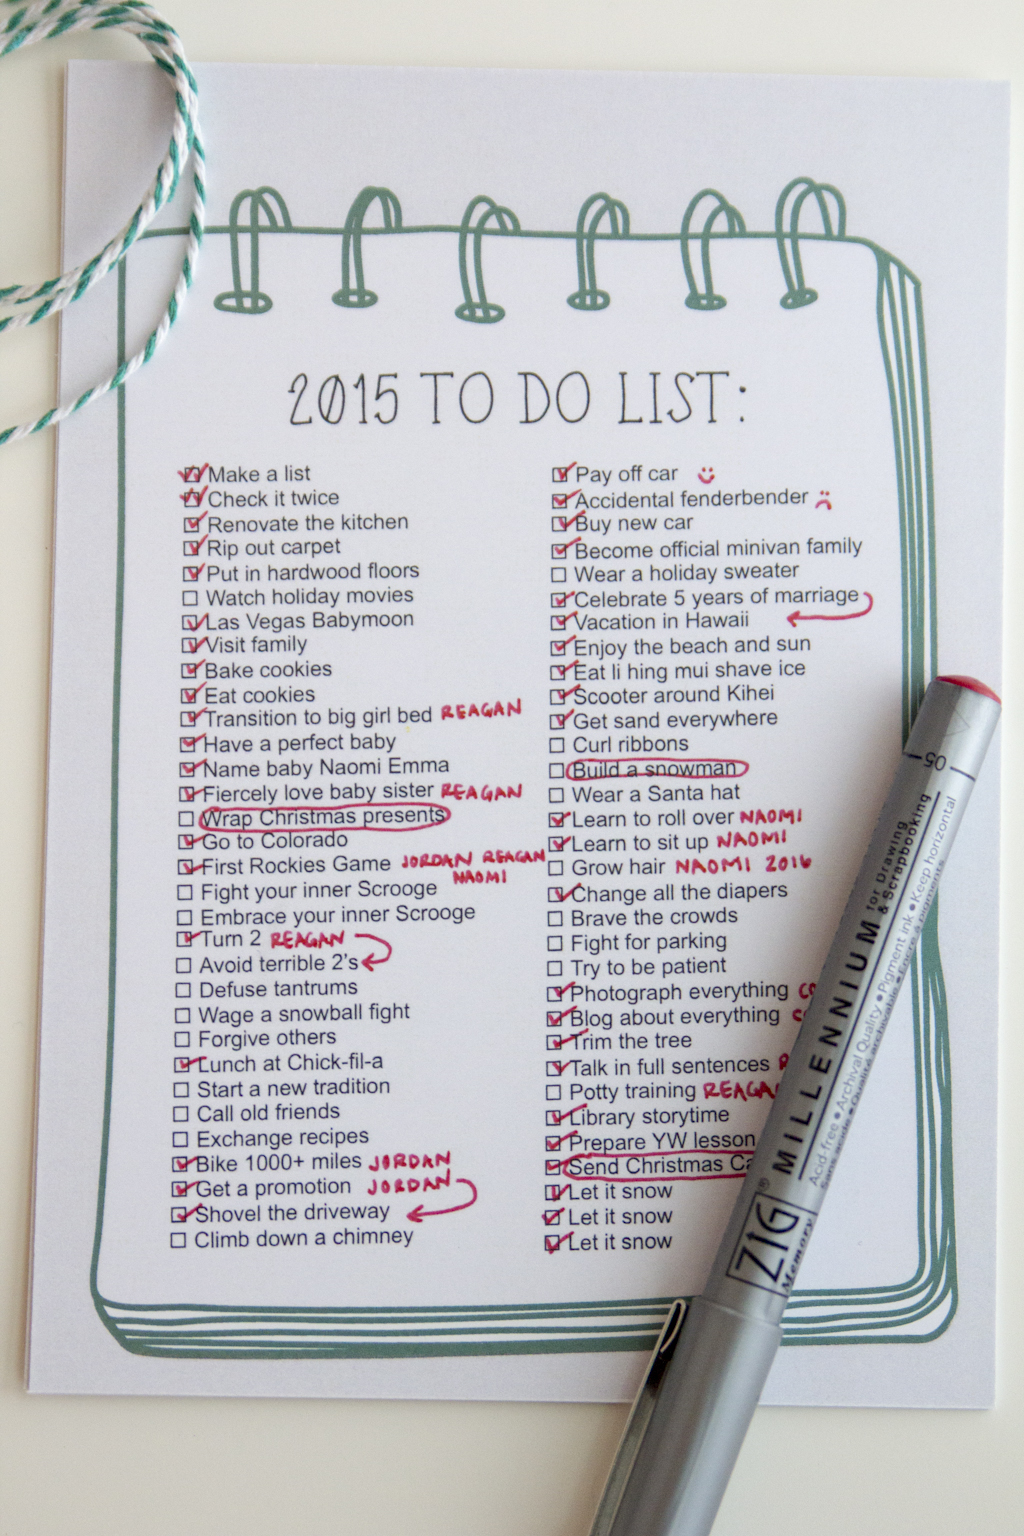 2015 TO DO LIST:
Make a list
Check it twice
Renovate the kitchen
Rip out carpet
Put in hardwood floors
Watch holiday movies
Las Vegas Babymoon
Visit family
Bake cookies
Eat cookies
Transition to big girl bed REAGAN
Have a perfect baby
Name baby Naomi Emma
Fiercely love baby sister REAGAN
Wrap Christmas presents
Go to Colorado
First Rockies Game JORDAN REAGAN
NAOMI
Fight your inner Scrooge
Embrace your inner Scrooge
Turn 2 REAGAN
Avoid terrible 2's
Defuse tantrums
Wage a snowball fight
Forgive others
Lunch at Chick-fil-a
Start a new tradition
Call old friends
Exchange recipes
Bike 1000+ miles JORDAN
Get a promotion JORDAN
Shovel the driveway
Climb down a chimney
Pay off car
Accidental fenderbender
Buy new car
Become official minivan family
Wear a holiday sweater
Celebrate 5 years of marriage
Vacation in Hawaii
Enjoy the beach and sun
Eat li hing mui shave ice
Scooter around Kihei
Get sand everywhere
Curl ribbons
Build a snowman
Wear a Santa hat
Learn to roll over NAOMI
Learn to sit up NAOMI
Grow hair NAOMI 2016
Change all the diapers
Brave the crowds
Fight for parking
Try to be patient
Photograph everything
Blog about everything
Trim the tree
Talk in full sentences
Potty training REAGA
Library storytime
Prepare YW lesson
Send Christmas Ca
Let it snow
Let it snow
Let it snow
05
ZIG® MILLENNIUM for Drawing
& Scrapbooking
Memory
Acid-free • Archival Quality • Pigment ink • Keep horizontal